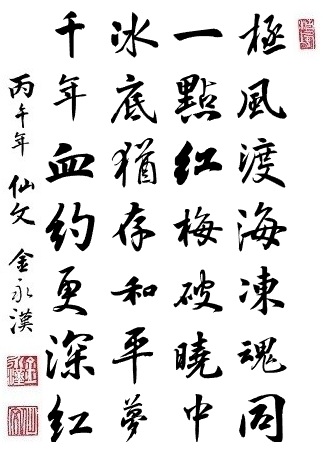 極風渡海凍魂同
一點紅梅破曉中
冰底猶存和平夢
千年血約更深紅
丙午年 仙文 金永漢